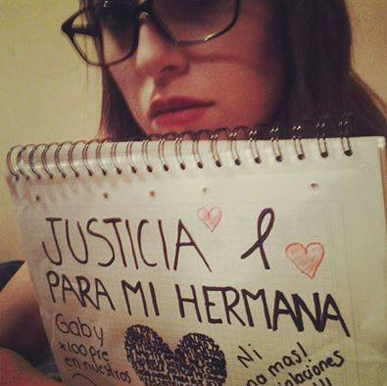 JUSTICIA
PARA MI HERMANA
Gaby
x100pre
en nuestros
Ni
mas!